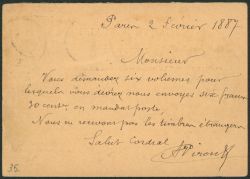 Paris 2 Février 1887
Monsieur
Vous demandez six volumes pour
lesquels vous devrez nous envoyer six francs
30 cent, en mandat poste.
Nous ne recevons pas les timbres étrangers
Salut cordial
35.